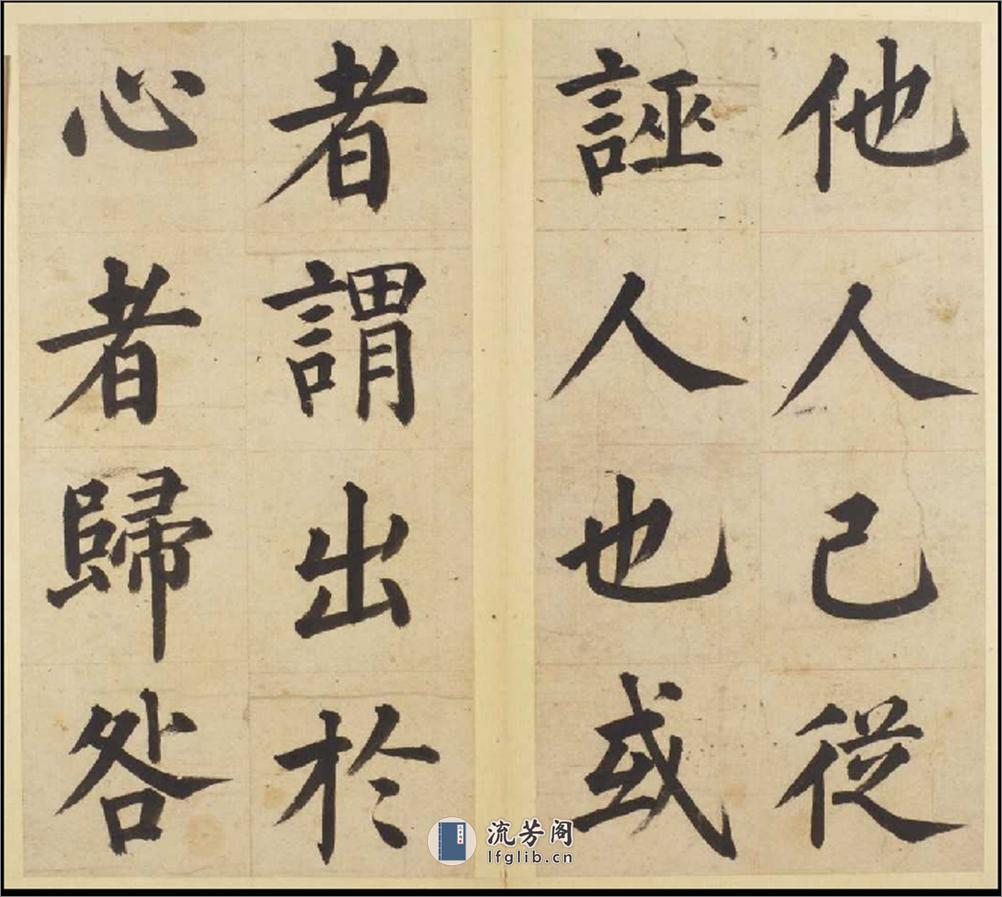 他人己從
誣人也或
者謂出於
心者歸咎
流芳阁
lfglib.cn